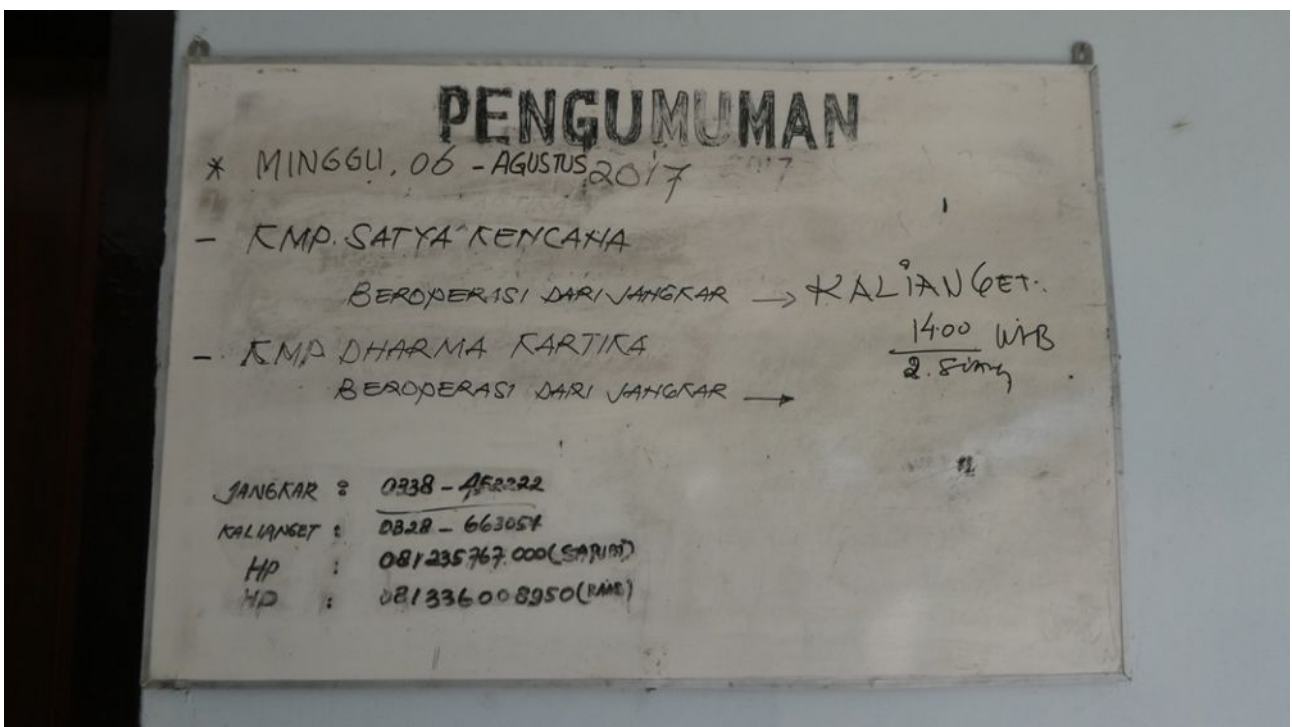 PENGUMUMAN
* MINGGU, 06 - AGUSTUS 2017 2017
- KMP. SATYA KENCANA
BEROPERASI DARI JANGKAR → KALIANGET..
14.00 WIB
2. Siang
- KMP DHARMA KARTIKA
BEROPERASI DARI JANGKAR →
JANGKAR : 0338 - 452222
KALIANGET : 0328 - 663054
HP : 081235767.000
HP : 081336008950